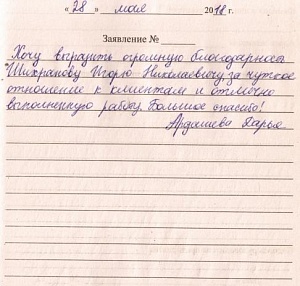 « 28 » мая 2018 г.
Заявление № ______
Хочу выразить огромную благодарность
Шихранову Игорю Николаевичу за чуткое
отношение к клиентам и отлично
выполненную работу. Большое спасибо!
Ардашева Дарья